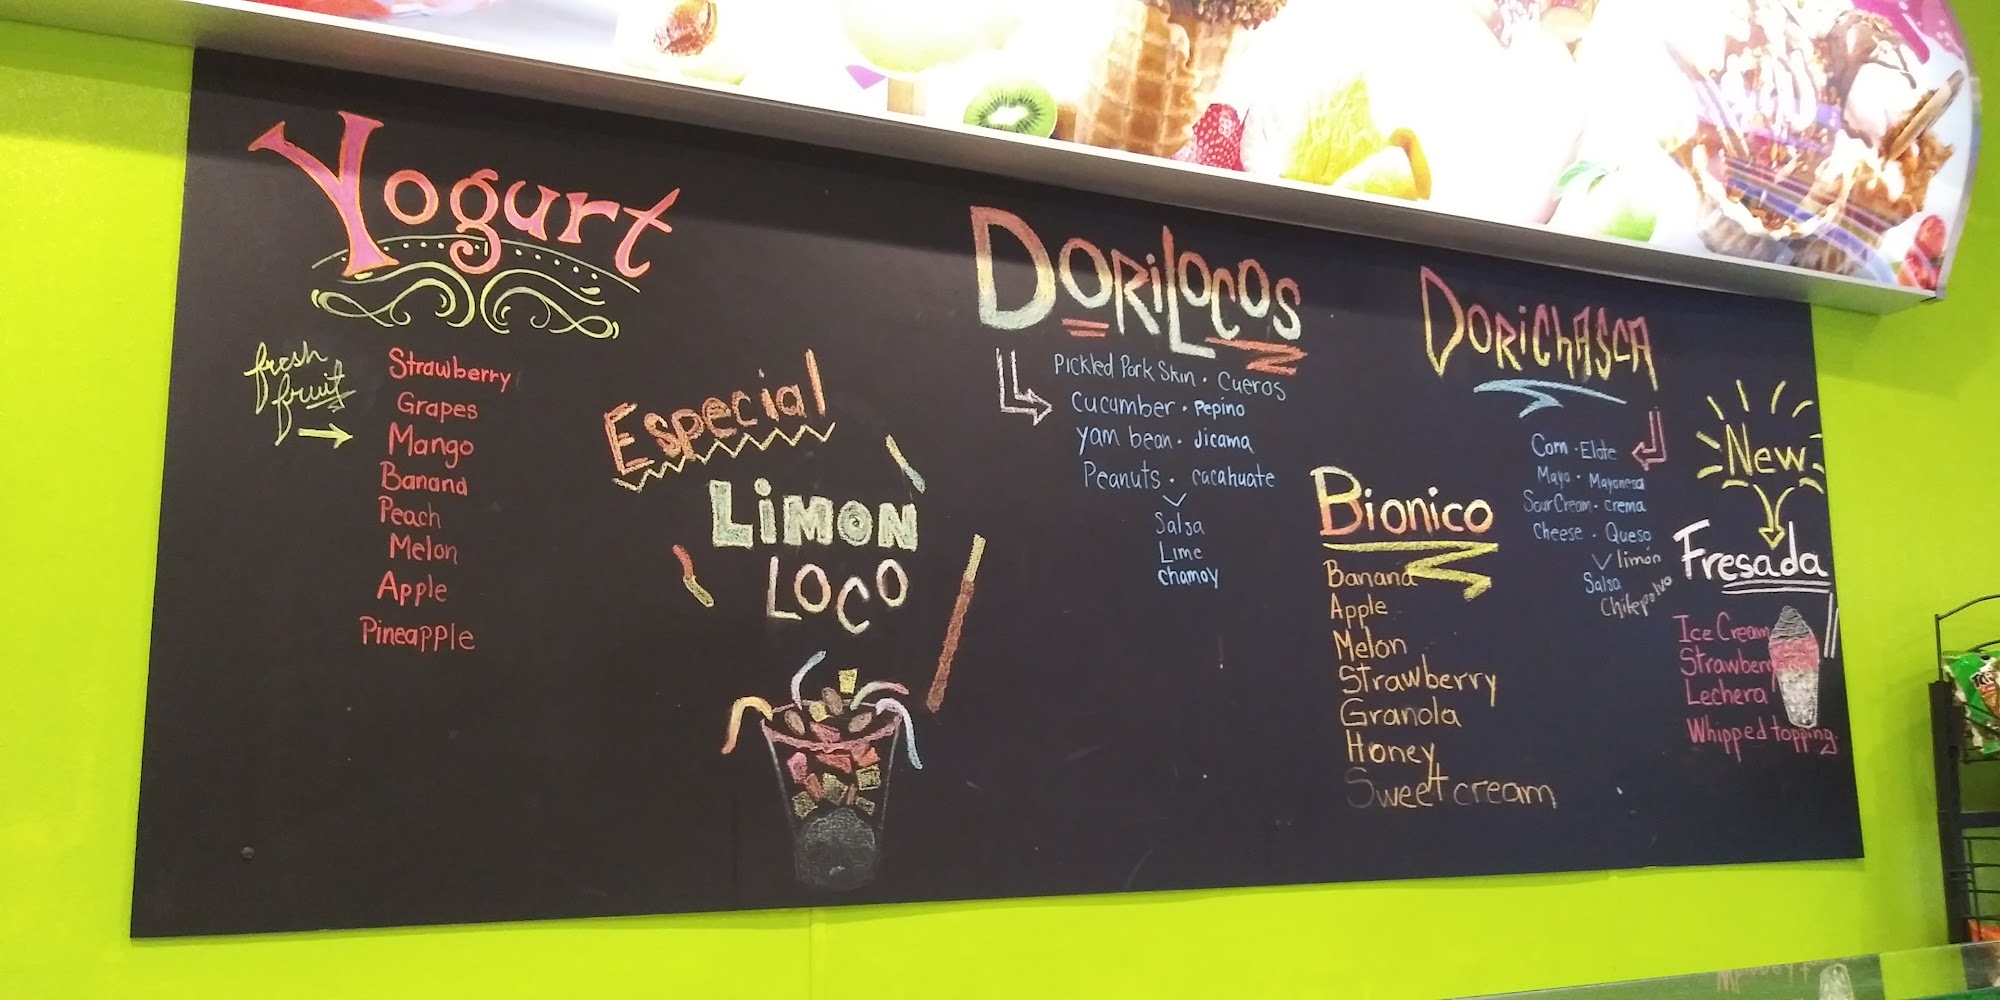 Yogurt
fresh
fruit
Strawberry
Grapes
Mango
Banana
Peach
Melon
Apple
Pineapple
Especial
LIMON
LOCO
DORILOCOS
Pickled Pork Skin · Cueros
Cucumber · Pepino
Yam bean · Jicama
Peanuts · cacahuate
Salsa
Lime
Chamoy
Bionico
Banana
Apple
Melon
Strawberry
Granola
Honey
Sweet cream
DORICHASCA
Corn · Elote
Mayo · Mayonesa
Sour Cream · crema
Cheese · Queso
limón
Salsa
Chilepolvo
New
Fresada
Ice Cream
Strawberry
Lechera
Whipped topping